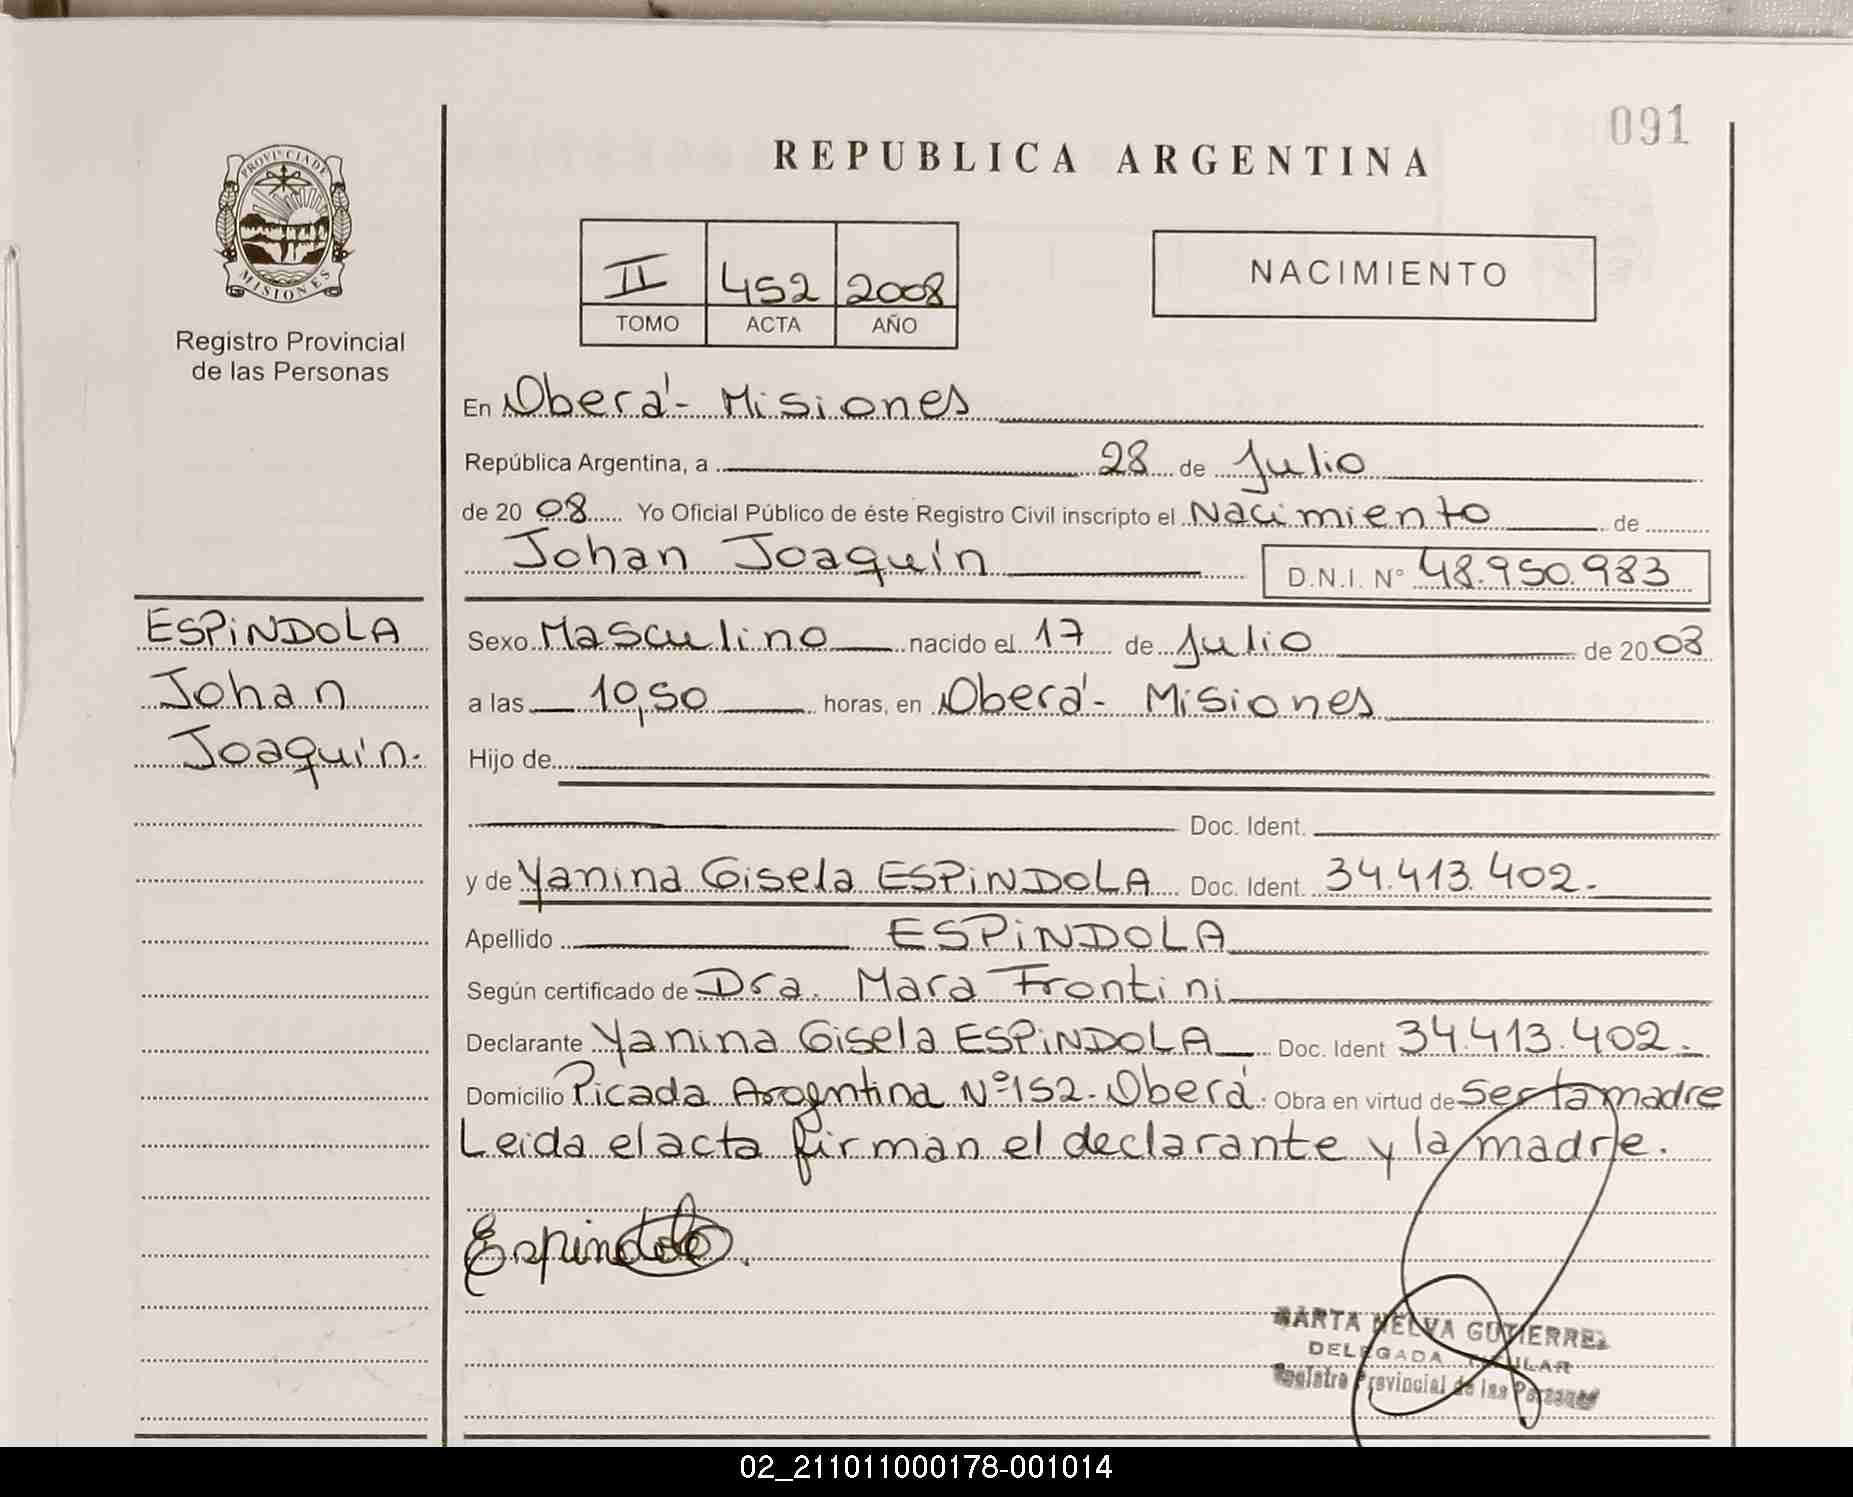 091
REPUBLICA ARGENTINA
PROVINCIA DE
MISIONES
Registro Provincial
de las Personas
II 452 2008
TOMO ACTA AÑO
NACIMIENTO
En Oberá - Misiones
República Argentina, a 28 de Julio
de 20 08 Yo Oficial Público de éste Registro Civil inscripto el Nacimiento de
Johan Joaquín D.N.I. N° 48.950.983
ESPiNDOLA
Johan
Joaquín.
Sexo Masculino nacido el 17 de Julio de 20 08
a las 10,50 horas, en Oberá - Misiones
Hijo de
Doc. Ident.
y de Yanina Gisela ESPiNDOLA Doc. Ident. 34.413.402.
Apellido ESPiNDOLA
Según certificado de Dra. Mara Frontini
Declarante Yanina Gisela ESPiNDOLA Doc. Ident 34.413.402.
Domicilio Picada Argentina Nº 152. Oberá. Obra en virtud de ser la madre
Leida el acta firman el declarante y la madre.
Espindola.
MARTA NELVA GUTIERREZ
DELEGADA TITULAR
Registro Provincial de las Personas
02_211011000178-001014